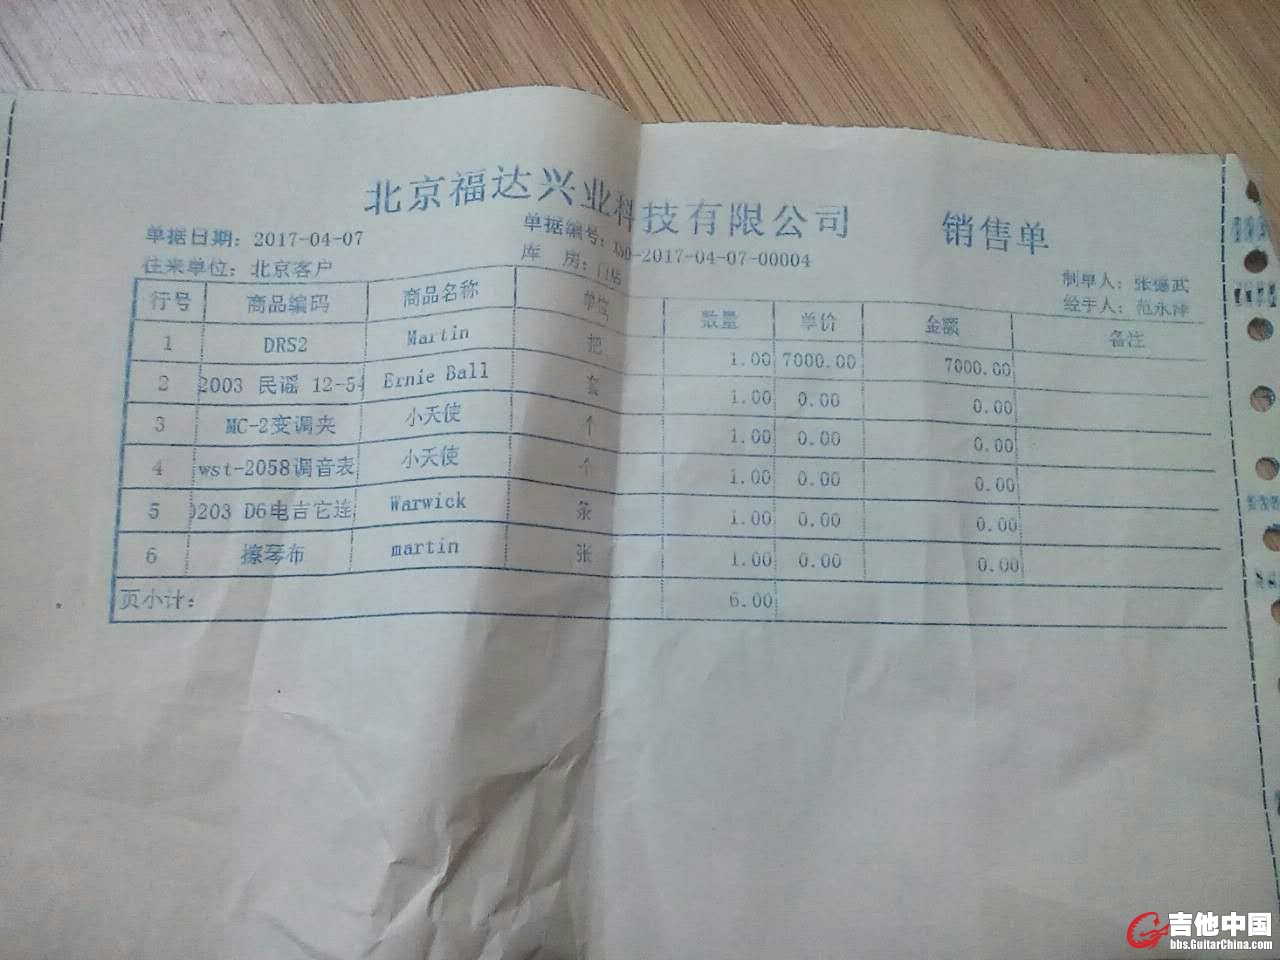 北京福达兴业科技有限公司 销售单
单据日期：2017-04-07 单据编号：XSD-2017-04-07-00004
往来单位：北京客户 库 房：门店 制单人：张德武
经手人：范永萍
行号 商品编码 商品名称 单位 数量 单价 金额 备注
1 DRS2 Martin 把 1.00 7000.00 7000.00
2 2003 民谣 12-54 Ernie Ball 套 1.00 0.00 0.00
3 MC-2变调夹 小天使 个 1.00 0.00 0.00
4 wst-2058调音表 小天使 个 1.00 0.00 0.00
5 0203 D6电吉它连 Warwick 条 1.00 0.00 0.00
6 擦琴布 martin 张 1.00 0.00 0.00
页小计： 6.00
吉他中国
bbs.GuitarChina.com